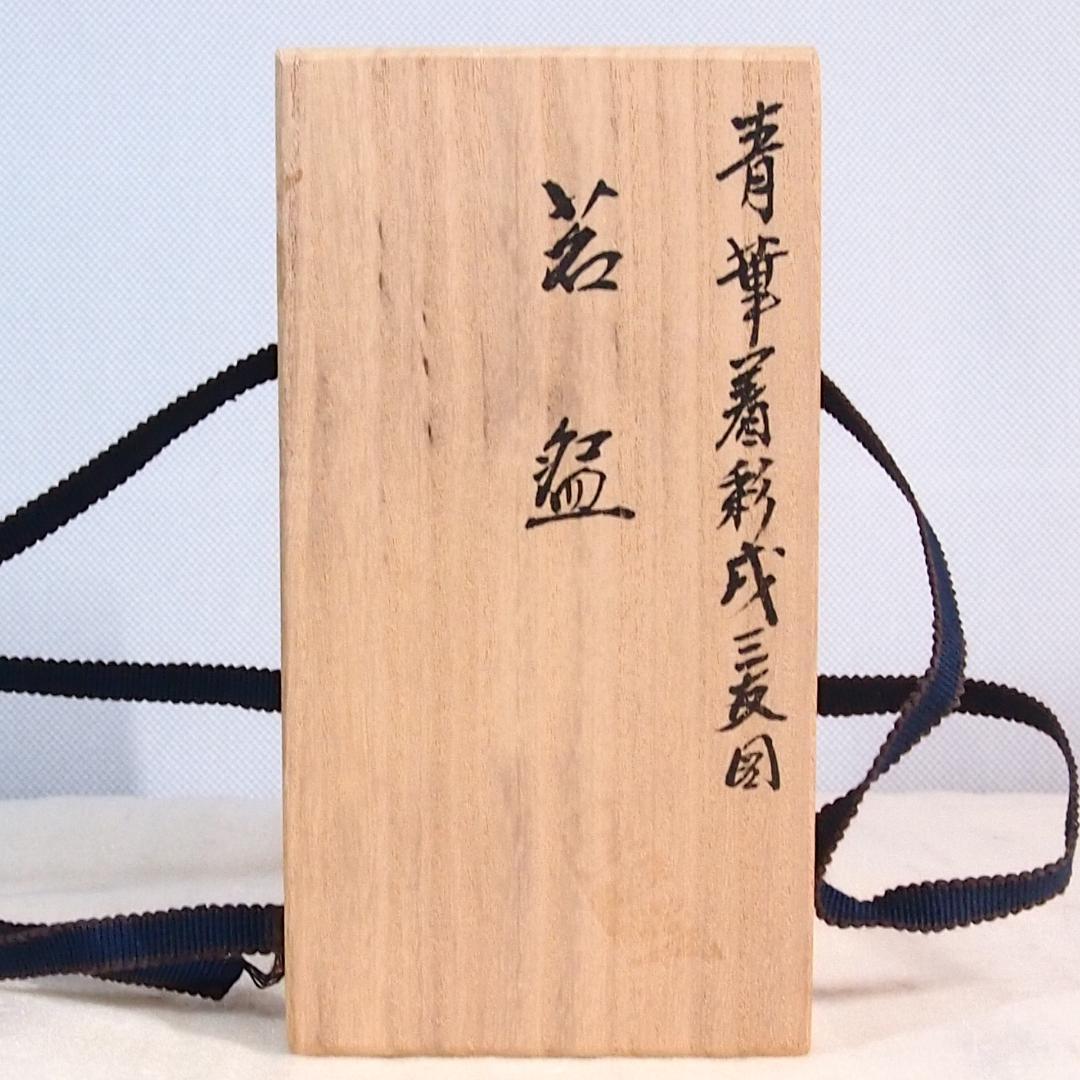 青華着彩三友図
茗盌